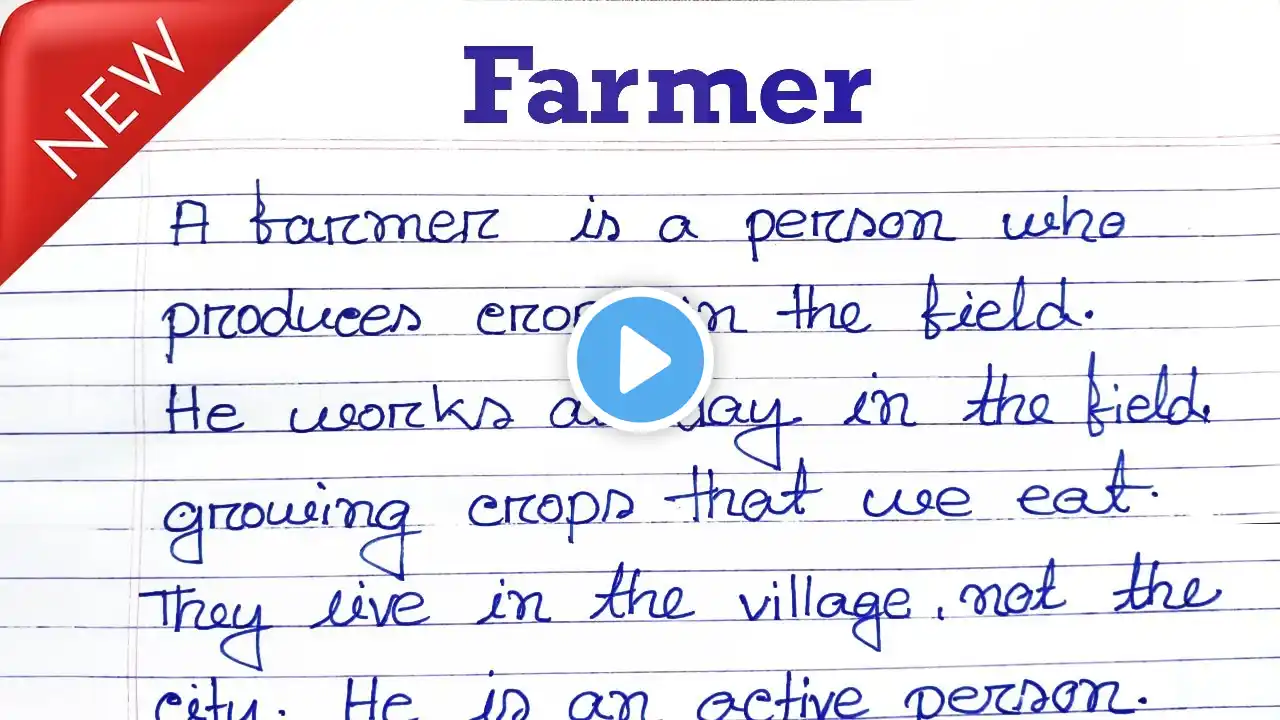 NEW
Farmer
A farmer is a person who
produces in the field.
He works in the field
growing crops that we eat.
They live in the village, not the
city. He is an active person.